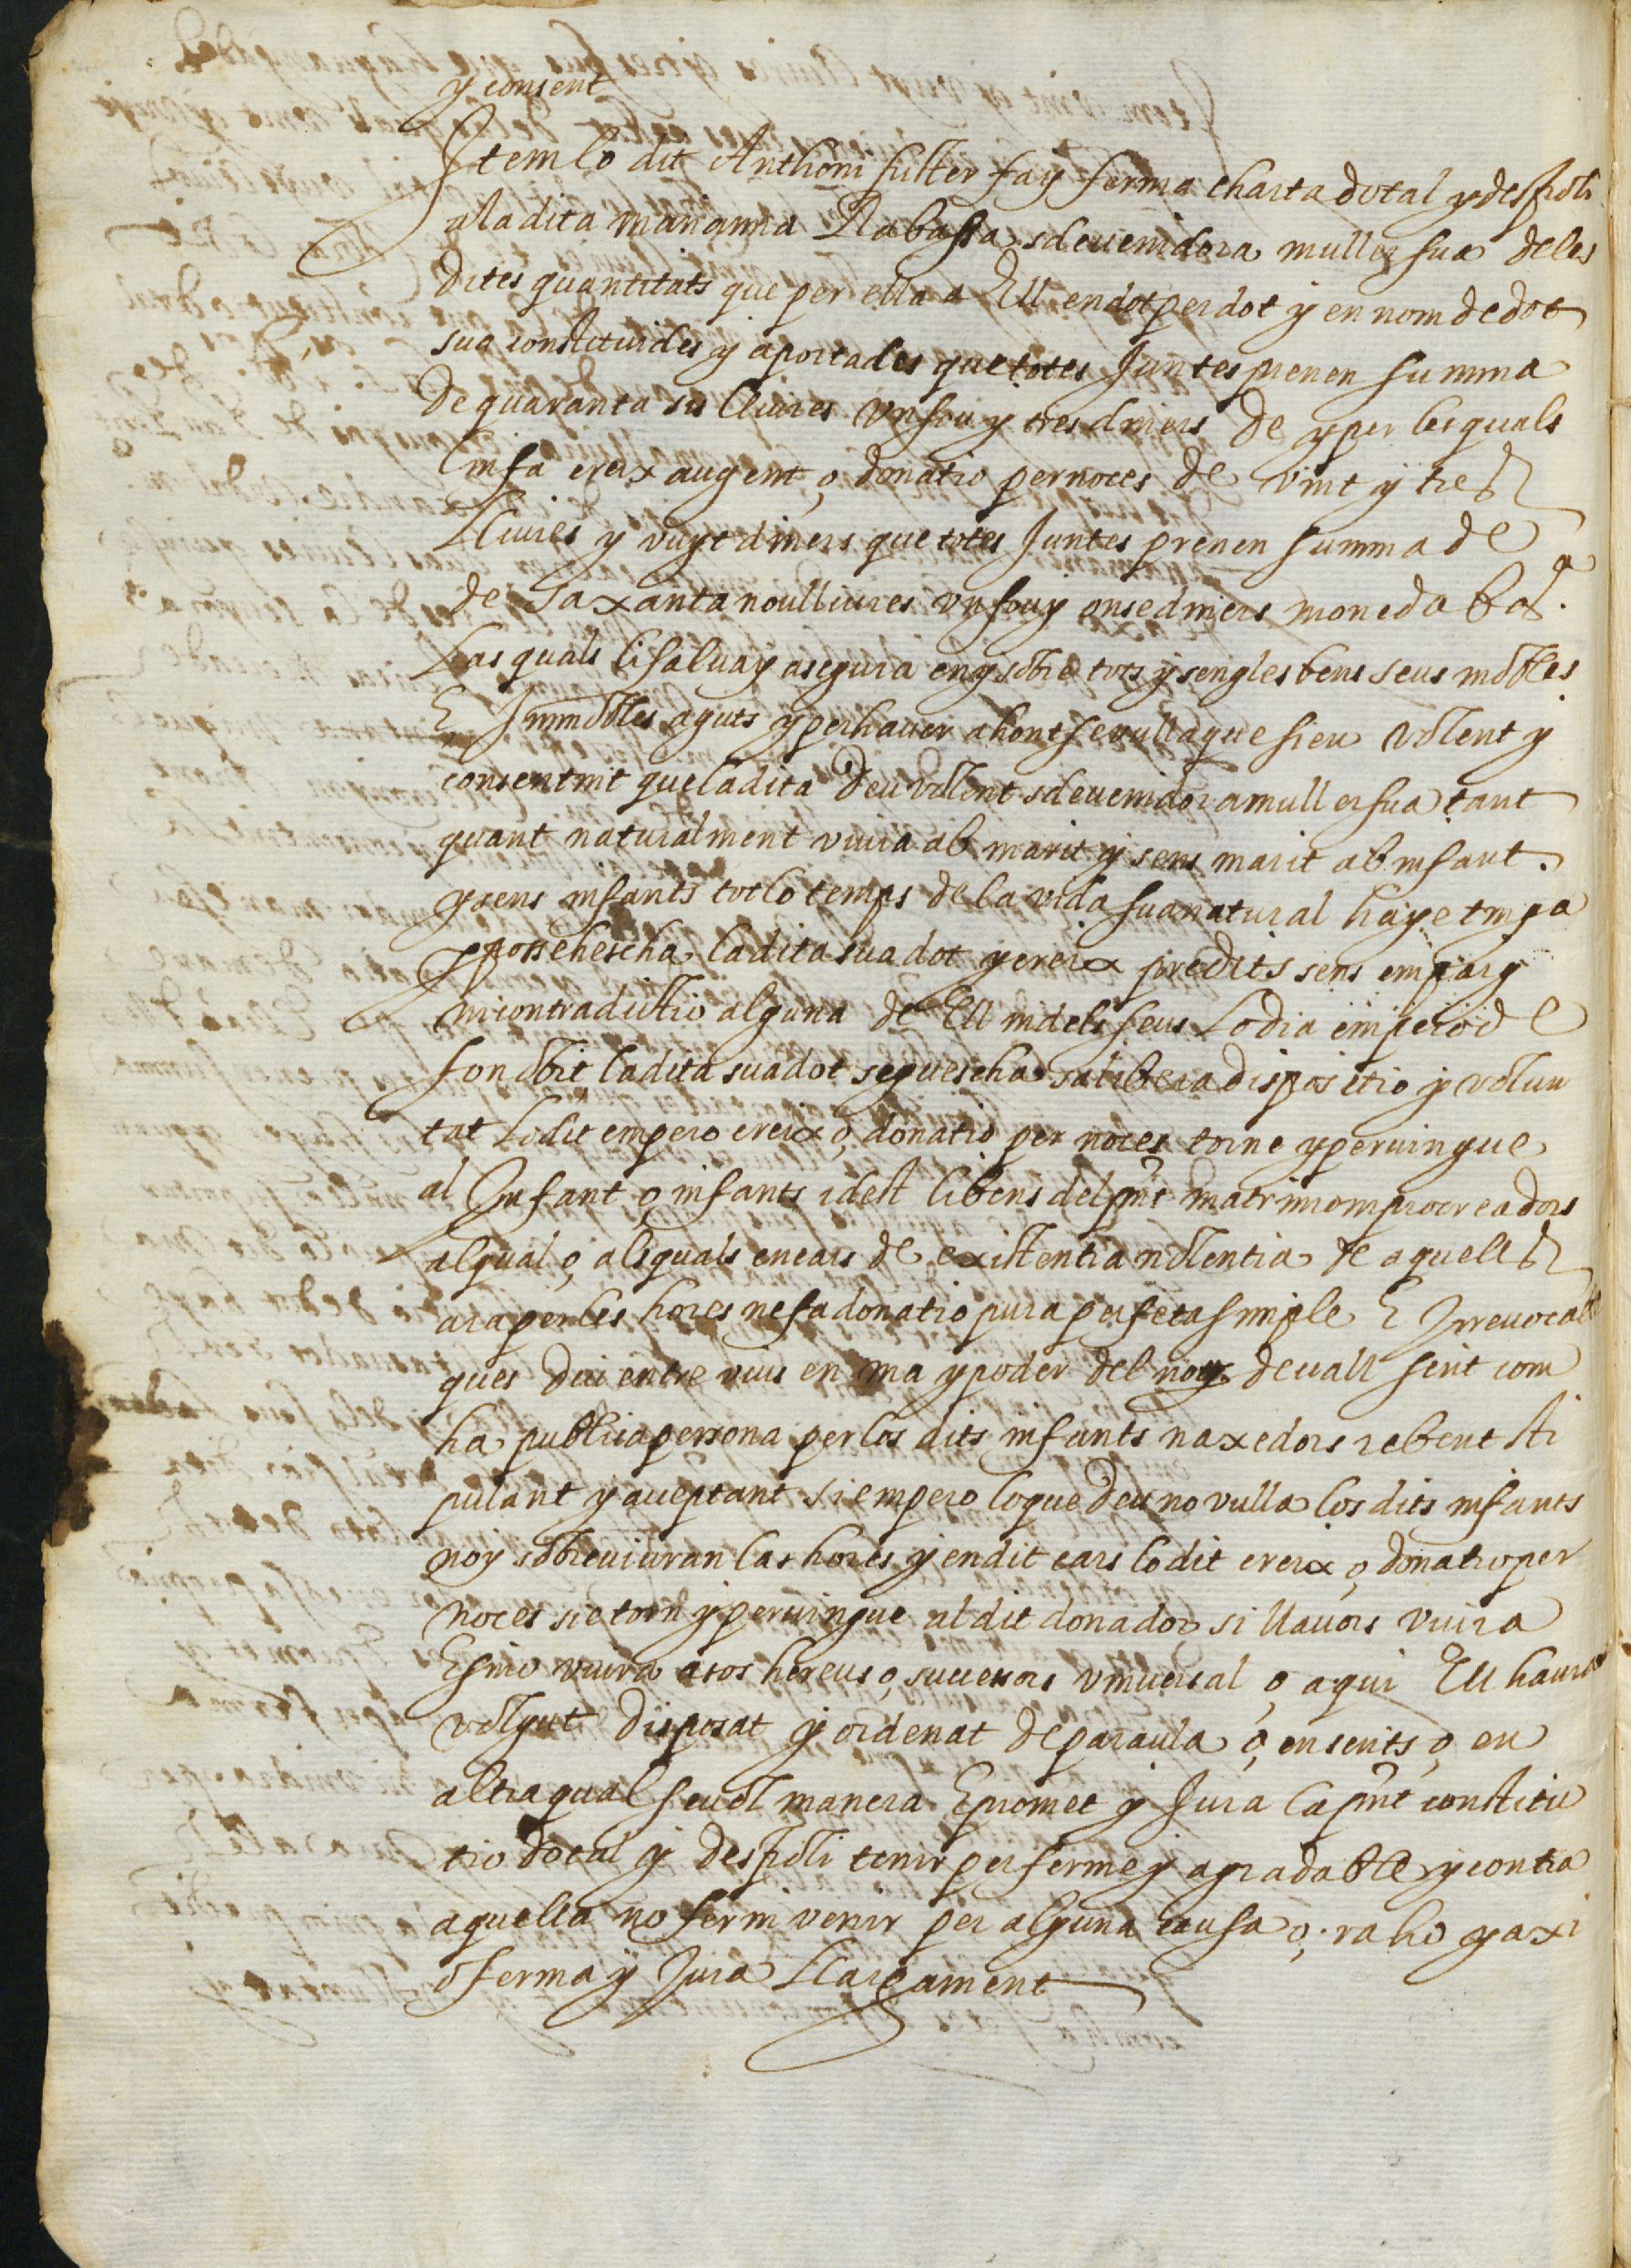 y consent
Item lo dit Anthoni fuster fa y ferma charta dotal y despoli
a la dita marianna Rabassa sdeuenidora muller sua de les
dites quantitats que per ella a Ell en dot per dot y en nom de dot
sua constituides y aportades que totes Juntes prenen summa
De quaranta sis lliures vn sou y tres diners De y per les quals
li nfa creix augent o donatio per noces de vint y tres
Lliures y vuyt diners que totes Juntes prenen summa de
de saxanta nou lliures vn sou y onse diners moneda bar.ª
Las quals li salua y asegura en y sobre tots y sengles bens seus mobles
E Immobles aguts y per hauer ahont seuulla que sien volent y
consentint que la dita Deu volent sdeuenidora muller sua tant
quant naturalment viura ab marit y sens marit ab infant
y sens infants tot lo temps de la vida sua natural haje tinga
y possehescha la dita sua dot y creix predits sens empaig
ni contradictio alguna de Ell ni dels seus Lo dia empero de
son obit la dita sua dot seguescha sa libera dispositio y volun
tat Lo dit empero creix o donatio per noces torne y peruingue
al Infant o infants idest libens del pnt matrimoni procreadors
al qual o als quals en cars de existentia nolentia de aquells
ara per les hores ne fa donatio pura perfeta simple E Irreuocable
ques diu entre vius en ma y poder del noy deuall scrit com
ha publica persona per los dits infants naxedors rebent sti
pulant y acceptant si empero lo que deu no vulla los dits infants
noy sobreviuran las hores y en dit cars lo dit creix o donatio per
noces sie torn y peruingue al dit donador si llauors viura
E si no viura a sos hereus o, successors vniuersal o a qui Ell haura
volgut disposat y ordenat de paraula o, en scrits o en
altra qual seuol manera E promet y Jura la pnt constitu
tio dotal y despoli tenir per ferme y agradable y contra
aquella no fer ni venir per alguna causa o, raho y axi
o ferma y Jura Llargament